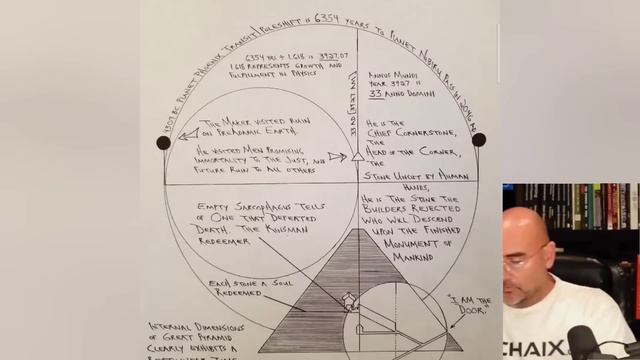 4309 BC PLANET PHOENIX TRANSIT/POLESHIFT IS 6354 YEARS TO PLANET NIBIRU PASS IN 2046 AD
6354 YRS ÷ 1.618 IS 3927.07
1.618 REPRESENTS GROWTH AND
FULFILLMENT IN PHYSICS
ANNUS MUNDI
YEAR 3927 IS
33 ANNO DOMINI
THE MAKER VISITED RUIN
ON PREADAMIC EARTH.
HE VISITED MEN PROMISING
IMMORTALITY TO THE JUST, AND
FUTURE RUIN TO ALL OTHERS
HE IS THE
CHIEF CORNERSTONE,
THE
HEAD OF THE CORNER,
THE
STONE UNCUT BY HUMAN
HANDS,
HE IS THE STONE THE
BUILDERS REJECTED
WHO WILL DESCEND
UPON THE FINISHED
MONUMENT OF
MANKIND
EMPTY SARCOPHAGUS TELLS
OF ONE THAT DEFEATED
DEATH. THE KINSMAN
REDEEMER
EACH STONE A SOUL
REDEEMED
"I AM THE
DOOR."
INTERNAL DIMENSIONS
OF GREAT PYRAMID
CLEARLY EXHIBITS A
CHAIX